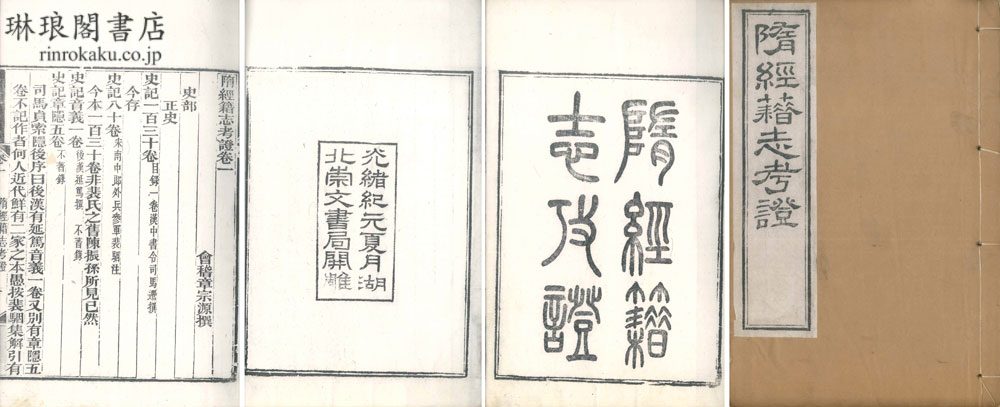 琳琅閣書店
rinrokaku.co.jp
隋經籍志考證
隋經籍
志攷證
光緒紀元夏月湖
北崇文書局開雕
隋經籍志考證卷一
會稽章宗源撰
史部
正史
史記一百三十卷目錄一卷漢中書令司馬遷撰
今存
史記八十卷宋南中郎外兵參軍裴駰注
今本一百三十卷非裴氏之舊陳振孫所見已然
史記音義一卷後漢延篤撰 不著錄
史記章隱五卷不著錄
司馬貞索隱後序曰後漢有延篤音義一卷又別有章隱五
卷不記作者何人近代鮮有二家之本愚按裴駰集解引有
隋經籍志考證